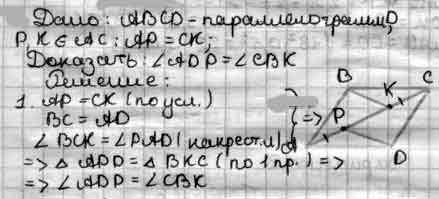 Дано: ABCD - параллелограмм,
P, K ∈ AC: AP = CK;
Доказать: ∠ADP = ∠CBK
Решение:
1. AP = CK (по усл.)
BC = AD
∠BCK = ∠PAD (накрест л.)
=> △APD = △BKC (по 1 пр.) =>
=> ∠ADP = ∠CBK
=>
B
K
C
P
A
D